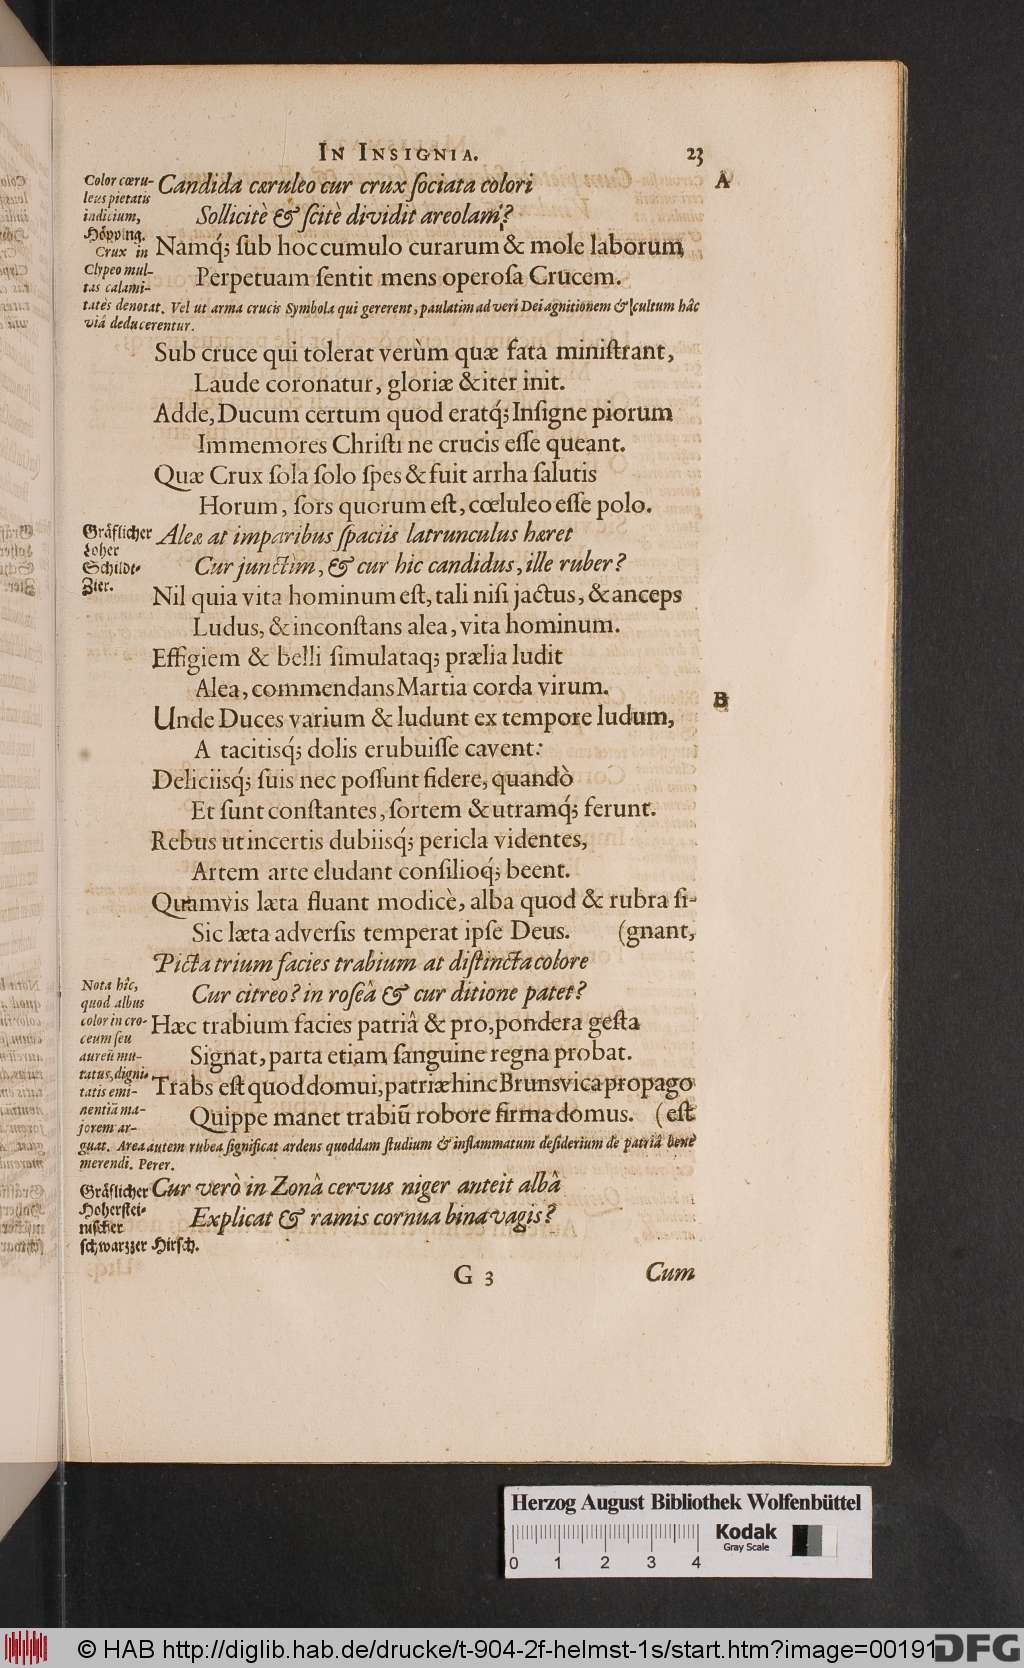 IN INSIGNIA. 23
A
Color cæru-
leus pietatis
indicium,
Höpping.
Crux in
Clypeo mul-
tas calami-
tates denotat. Vel ut arma crucis Symbola qui gererent, paulatim ad veri Dei agnitionem & cultum hâc
viâ deducerentur.
Candida cæruleo cur crux ſociata colori
Sollicitè & ſcitè dividit areolam?
Namq́; ſub hoc cumulo curarum & mole laborum
Perpetuam ſentit mens operoſa Crucem.
Sub cruce qui tolerat verùm quæ fata miniſtrant,
Laude coronatur, gloriæ & iter init.
Adde, Ducum certum quod eratq́; Inſigne piorum
Immemores Chriſti ne crucis eſſe queant.
Quæ Crux ſola ſolo ſpes & fuit arrha ſalutis
Horum, ſors quorum eſt, cœluleo eſſe polo.
Gräflicher
Loher
Schildt-
Zier.
Aleæ at imparibus ſpaciis latrunculus hæret
Cur junctim, & cur hic candidus, ille ruber?
Nil quia vita hominum eſt, tali niſi jactus, & anceps
Ludus, & inconſtans alea, vita hominum.
Effigiem & belli ſimulataq; prælia ludit
Alea, commendans Martia corda virum.
B
Unde Duces varium & ludunt ex tempore ludum,
A tacitisq́; dolis erubuiſſe cavent:
Deliciisq́; ſuis nec poſſunt fidere, quandò
Et ſunt conſtantes, ſortem & utramq́; ferunt.
Rebus ut incertis dubiisq́; pericla videntes,
Artem arte eludant conſilioq́; beent.
Quamvis læta fluant modicè, alba quod & rubra ſi-
Sic læta adverſis temperat ipſe Deus. (gnant,
Picta trium facies trabium at diſtincta colore
Cur citreo? in roſeâ & cur ditione patet?
Nota hîc,
quod albus
color in cro-
ceum ſeu
aureũ mu-
tatus, digni-
tatis emi-
nentia ma-
jorem ar-
guat. Area autem rubea ſignificat ardens quoddam ſtudium & inflammatum deſiderium de patriâ benè
merendi. Perer.
Hæc trabium facies patriâ & pro, pondera geſta
Signat, parta etiam ſanguine regna probat.
Trabs eſt quod domui, patriæ hinc Brunsvica propago
Quippe manet trabiũ robore firma domus. (eſt
Gräflicher
Hoherſtei-
niſcher
ſchwartzer Hirſch.
Cur verò in Zonâ cervus niger anteit albâ
Explicat & ramis cornua bina vagis?
G 3 Cum
Herzog August Bibliothek Wolfenbüttel
0 1 2 3 4
Kodak
Gray Scale
© HAB http://diglib.hab.de/drucke/t-904-2f-helmst-1s/start.htm?image=00191
DFG